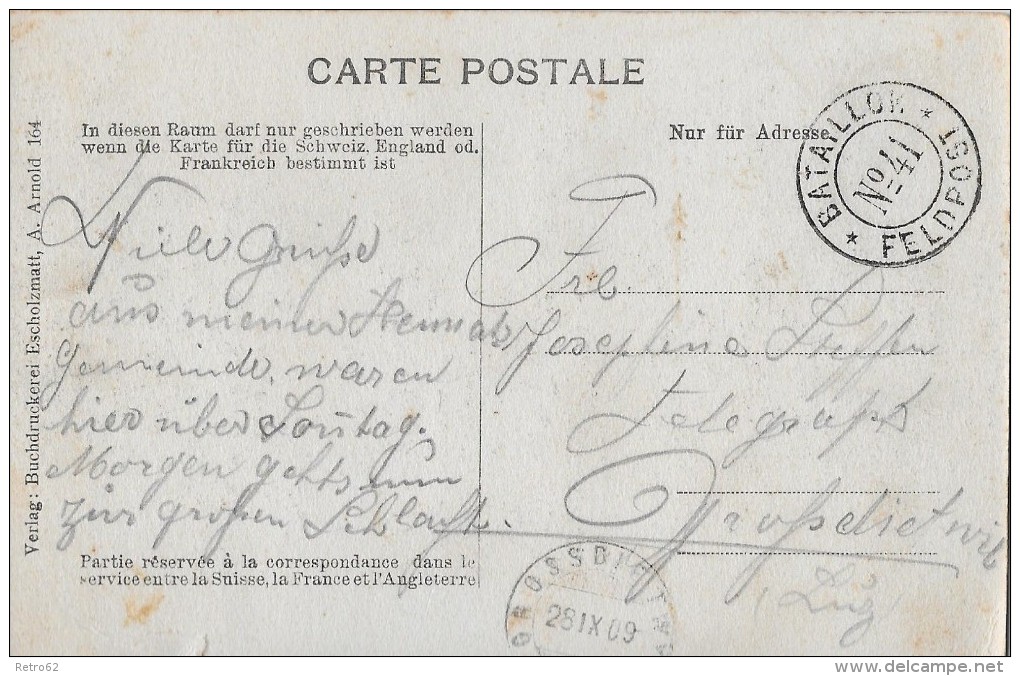 CARTE POSTALE
In diesen Raum darf nur geschrieben werden
wenn die Karte für die Schweiz. England od.
Frankreich bestimmt ist
Nur für Adresse
BATAILLON * FELDPOST *
No 41
Verlag: Buchdruckerei Escholzmatt, A. Arnold 164
Viele Grüße
aus meiner Heimats
Gemeinde. waren
hier über Soñtag.
Morgen gehts nun
zur großen Schlacht.
Frl.
Josephine
Telegraph
Großdietwil
(Luz)
Partie réservée à la correspondance dans le
service entre la Suisse, la France et l'Angleterre
28 IX 09
Retro62
www.delcampe.net